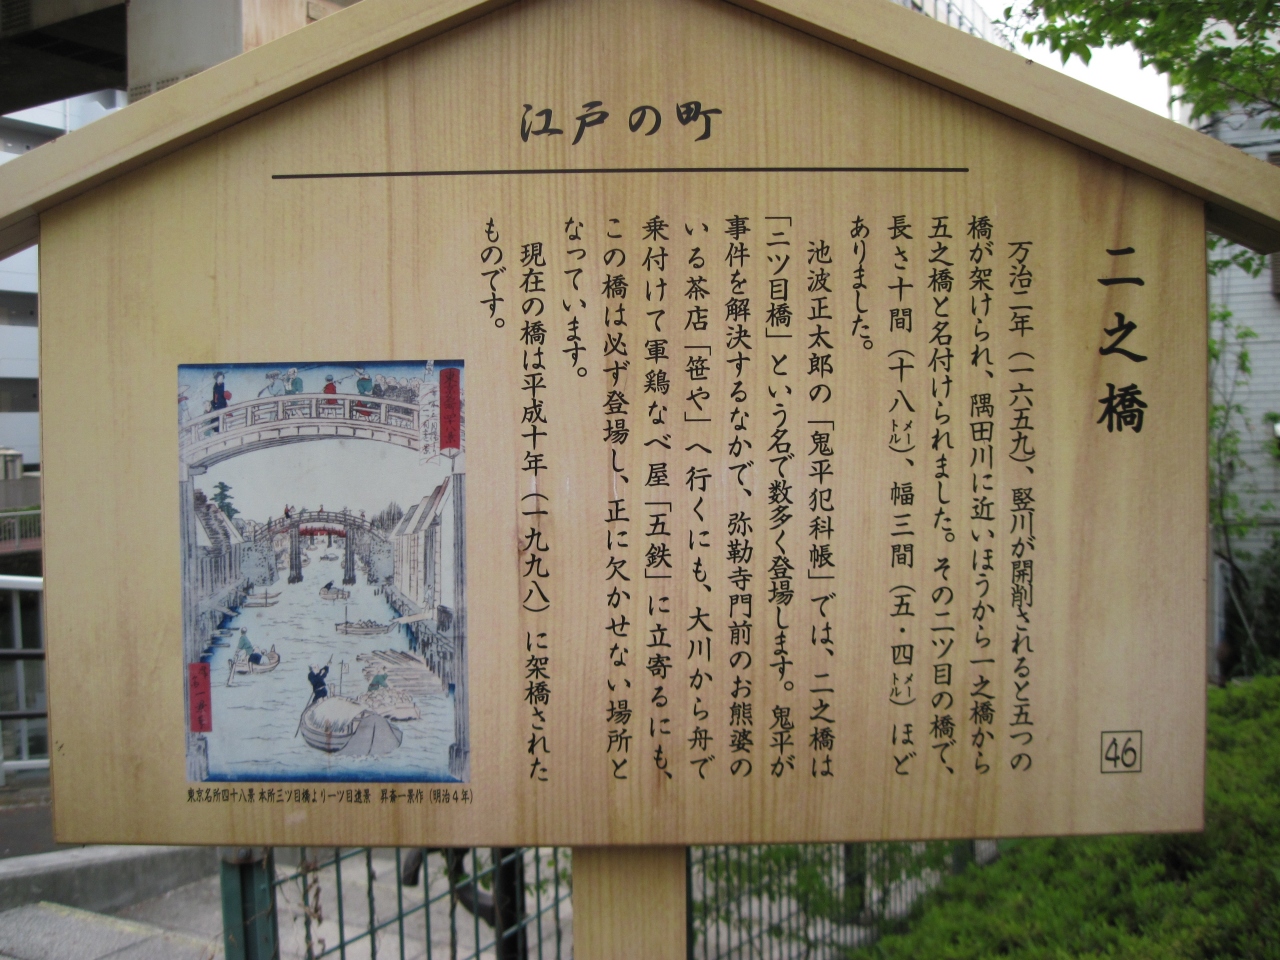 江戸の町
二之橋
46
万治二年（一六五九）、竪川が開削されると五つの
橋が架けられ、隅田川に近いほうから一之橋から
五之橋と名付けられました。その二ツ目の橋で、
長さ十間（十八メートル）、幅三間（五・四メートル）ほど
ありました。
池波正太郎の「鬼平犯科帳」では、二之橋は
「二ツ目橋」という名で数多く登場します。鬼平が
事件を解決するなかで、弥勒寺門前のお熊婆の
いる茶店「笹や」へ行くにも、大川から舟で
乗付けて軍鶏なべ屋「五鉄」に立寄るにも、
この橋は必ず登場し、正に欠かせない場所と
なっています。
現在の橋は平成十年（一九九八）に架橋された
ものです。
東京名所四十八景 本所三ツ目橋より一ツ目遠景 昇斎一景作（明治4年）